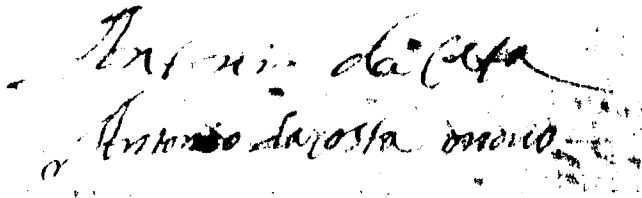 Antonio da Costa
Antonio da Costa o novo